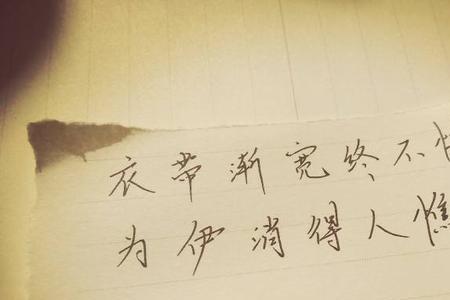 衣带渐宽终不
为伊消得人憔